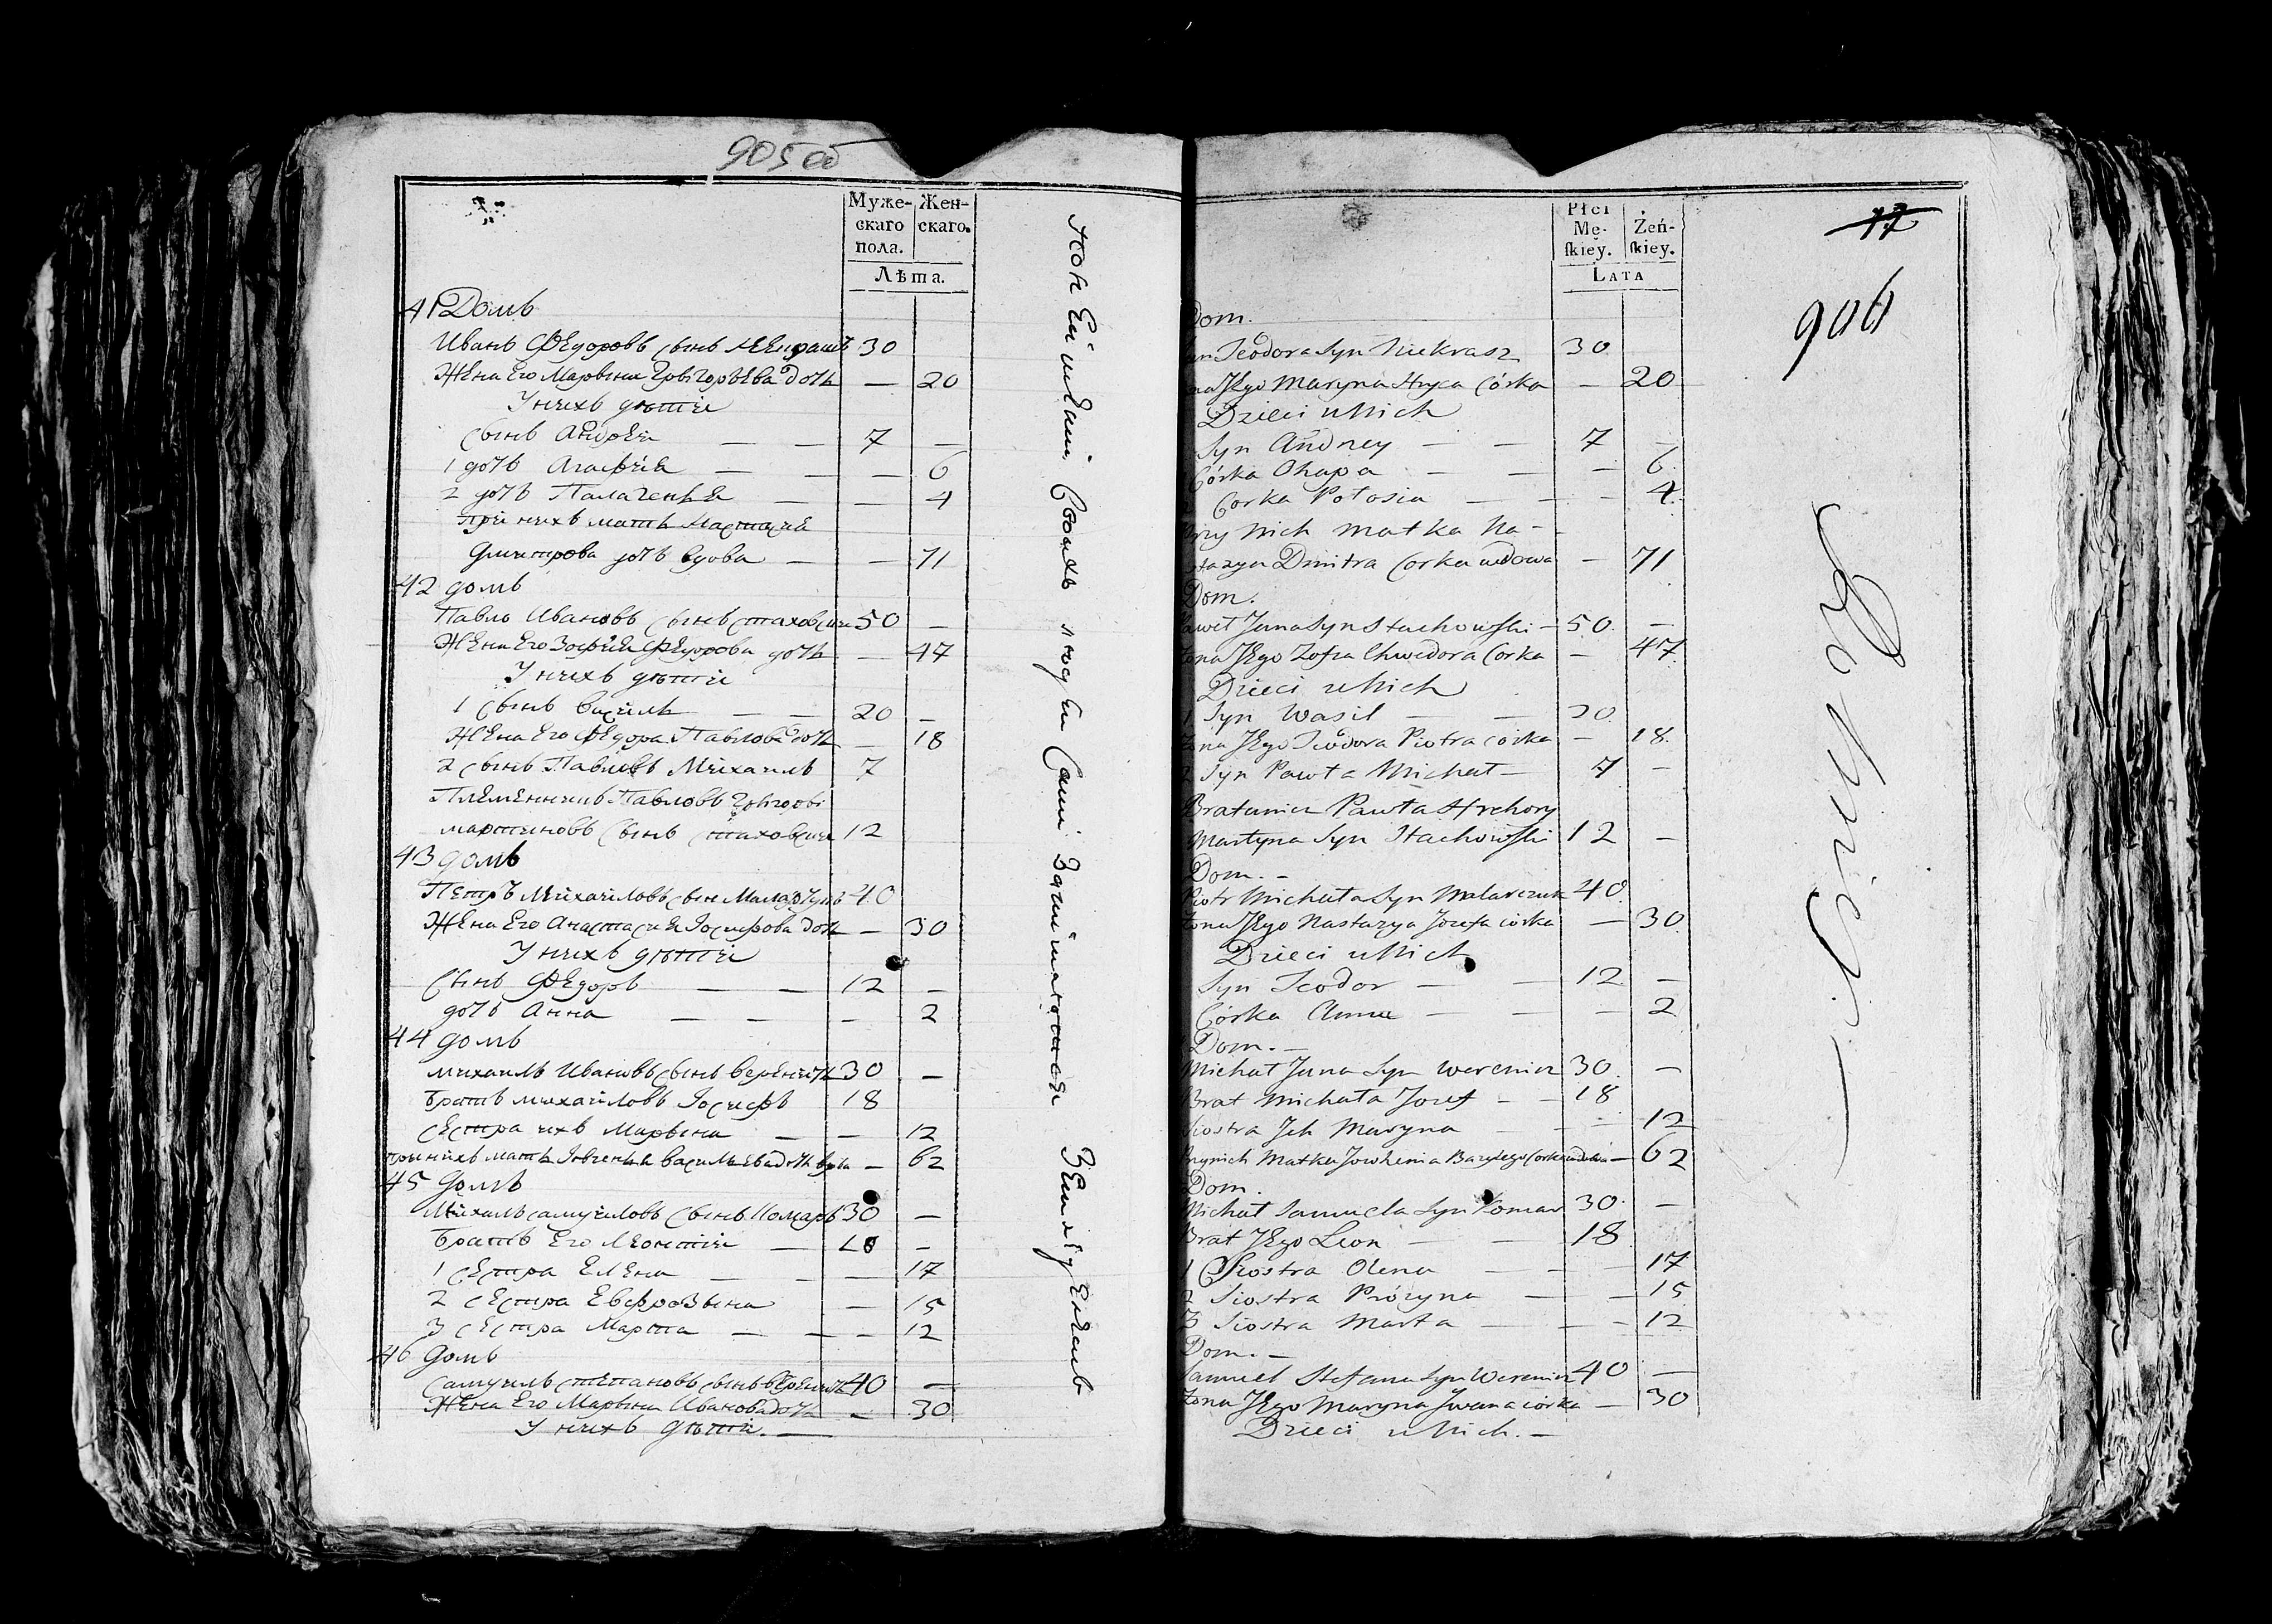 905 об
Муже-
скаго
пола.
Жен-
скаго.
Лѣта.
41 Домъ
Иванъ Федоровъ сынъ Некрашъ 30
Жена Его Марьяна Григорьева дочь — 20
У нихъ дѣти
Сынъ Андрей — — 7 —
1 дочь Агафія — — — 6
2 дочь Палагея — — 4
при нихъ мать Настасія
Дмитрова дочь вдова — — 71
42 домъ
Павло Ивановъ сынъ Стаховски 50 —
Жена Его Зофія Федорова дочь — 47
У нихъ дѣти
1 Сынъ Василь — — 20 —
Жена Его Федора Павлова дочь — 18
2 сынъ Павловъ Михаилъ 7
Племенникъ Павловъ Григори
мартиновъ сынъ Стаховски 12
43 домъ
Петръ Михайловъ сын Маларчукъ 40
Жена Его Анастасия Іосифова дочь — 30
У нихъ дѣти
Сынъ Федоръ — — 12 —
дочь Анна — — — 2
44 домъ
михаилъ Ивановъ сынъ Вереничъ 30 —
Братъ михайловъ Іосифъ 18
сестра ихъ Марьяна — — 12
при нихъ мать Васильева дочь вдова — 62
45 домъ
Михалъ самуиловъ сынъ Комаръ 30 —
Братъ Его Леонтій — 18 —
1 сестра Елена — — — 17
2 сестра Евфрозына — 15
3 сестра Марта — — — 12
46 домъ
Самуилъ степановъ сынъ Вереничъ 40 —
Жена Его Марьяна Иванова дочь — 30
У нихъ дѣти. —
люди Сами
Płci
Mę-
skiey.
Żeń-
skiey.
Lata
Dom.
Teodora Syn Niekrasz 30
Jego Maryna Hryca Córka — 20
Dzieci u Nich
Syn Andrey — — 7 —
Córka Ohapa — — — 6
Corka Połosia — — — 4
Przy Nich Matka Na-
stazya Dmitra Corka wdowa — 71
Dom.
Paweł Jana Syn Stachowski — 50 —
Żona Jego Zofia Chwedora Corka — 47
Dzieci u Nich
1 Syn Wasil — — 20
Żona Jego Teodora Piotra córka — 18
2 Syn Pawła Michał — 7 —
Bratanicz Pawła Hrehory
Martyna Syn Stachowski 12 —
Dom. —
Piotr Michała Syn Malarczuk 40
Żona Jego Nastazya Jozefa córka — 30
Dzieci u Nich
Syn Teodor — — 12 —
Córka Anna — — — 2
Dom. —
Michał Jana Syn Werenicz 30 —
Brat Michała Jozef — — 18
Siostra Jch Maryna — — 12
Przynich Matka Jowhenia Bazylego Corka wdowa — 62
Dom.
Michał Samuela Syn Komar 30 —
Brat Jego Leon — — 18
1 Siostra Olena — — — 17
2 Siostra Prózyna — — 15
3 Siostra Marta — — — 12
Dom. —
Samuel Stefana Syn Werenicz 40 —
Żona Jego Maryna Jwana córka — 30
Dzieci u Nich. —
906